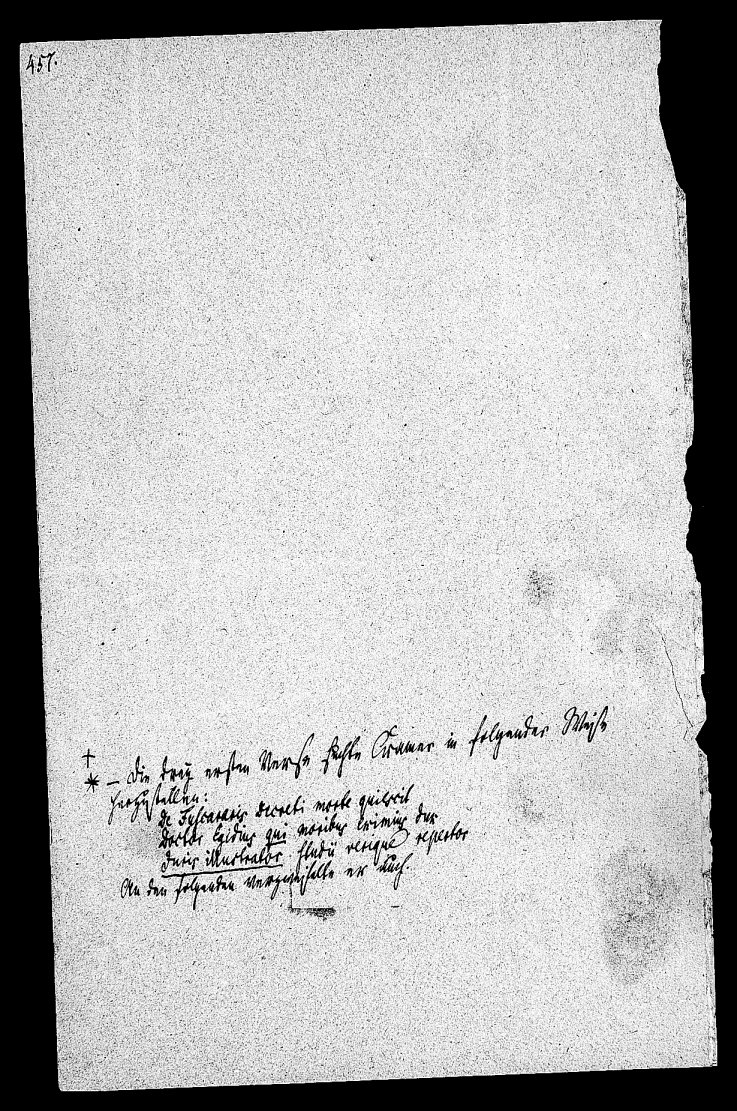 457.
† * – Die drey ersten Verse suchte Cramer in folgender Weise
herzustellen:
De Fuscarariis decreti morte quiescit
Doctor Egidius qui moribus eximius dux
Juris illustrator studii verique repertor
An den folgenden verzweifelte er auch.